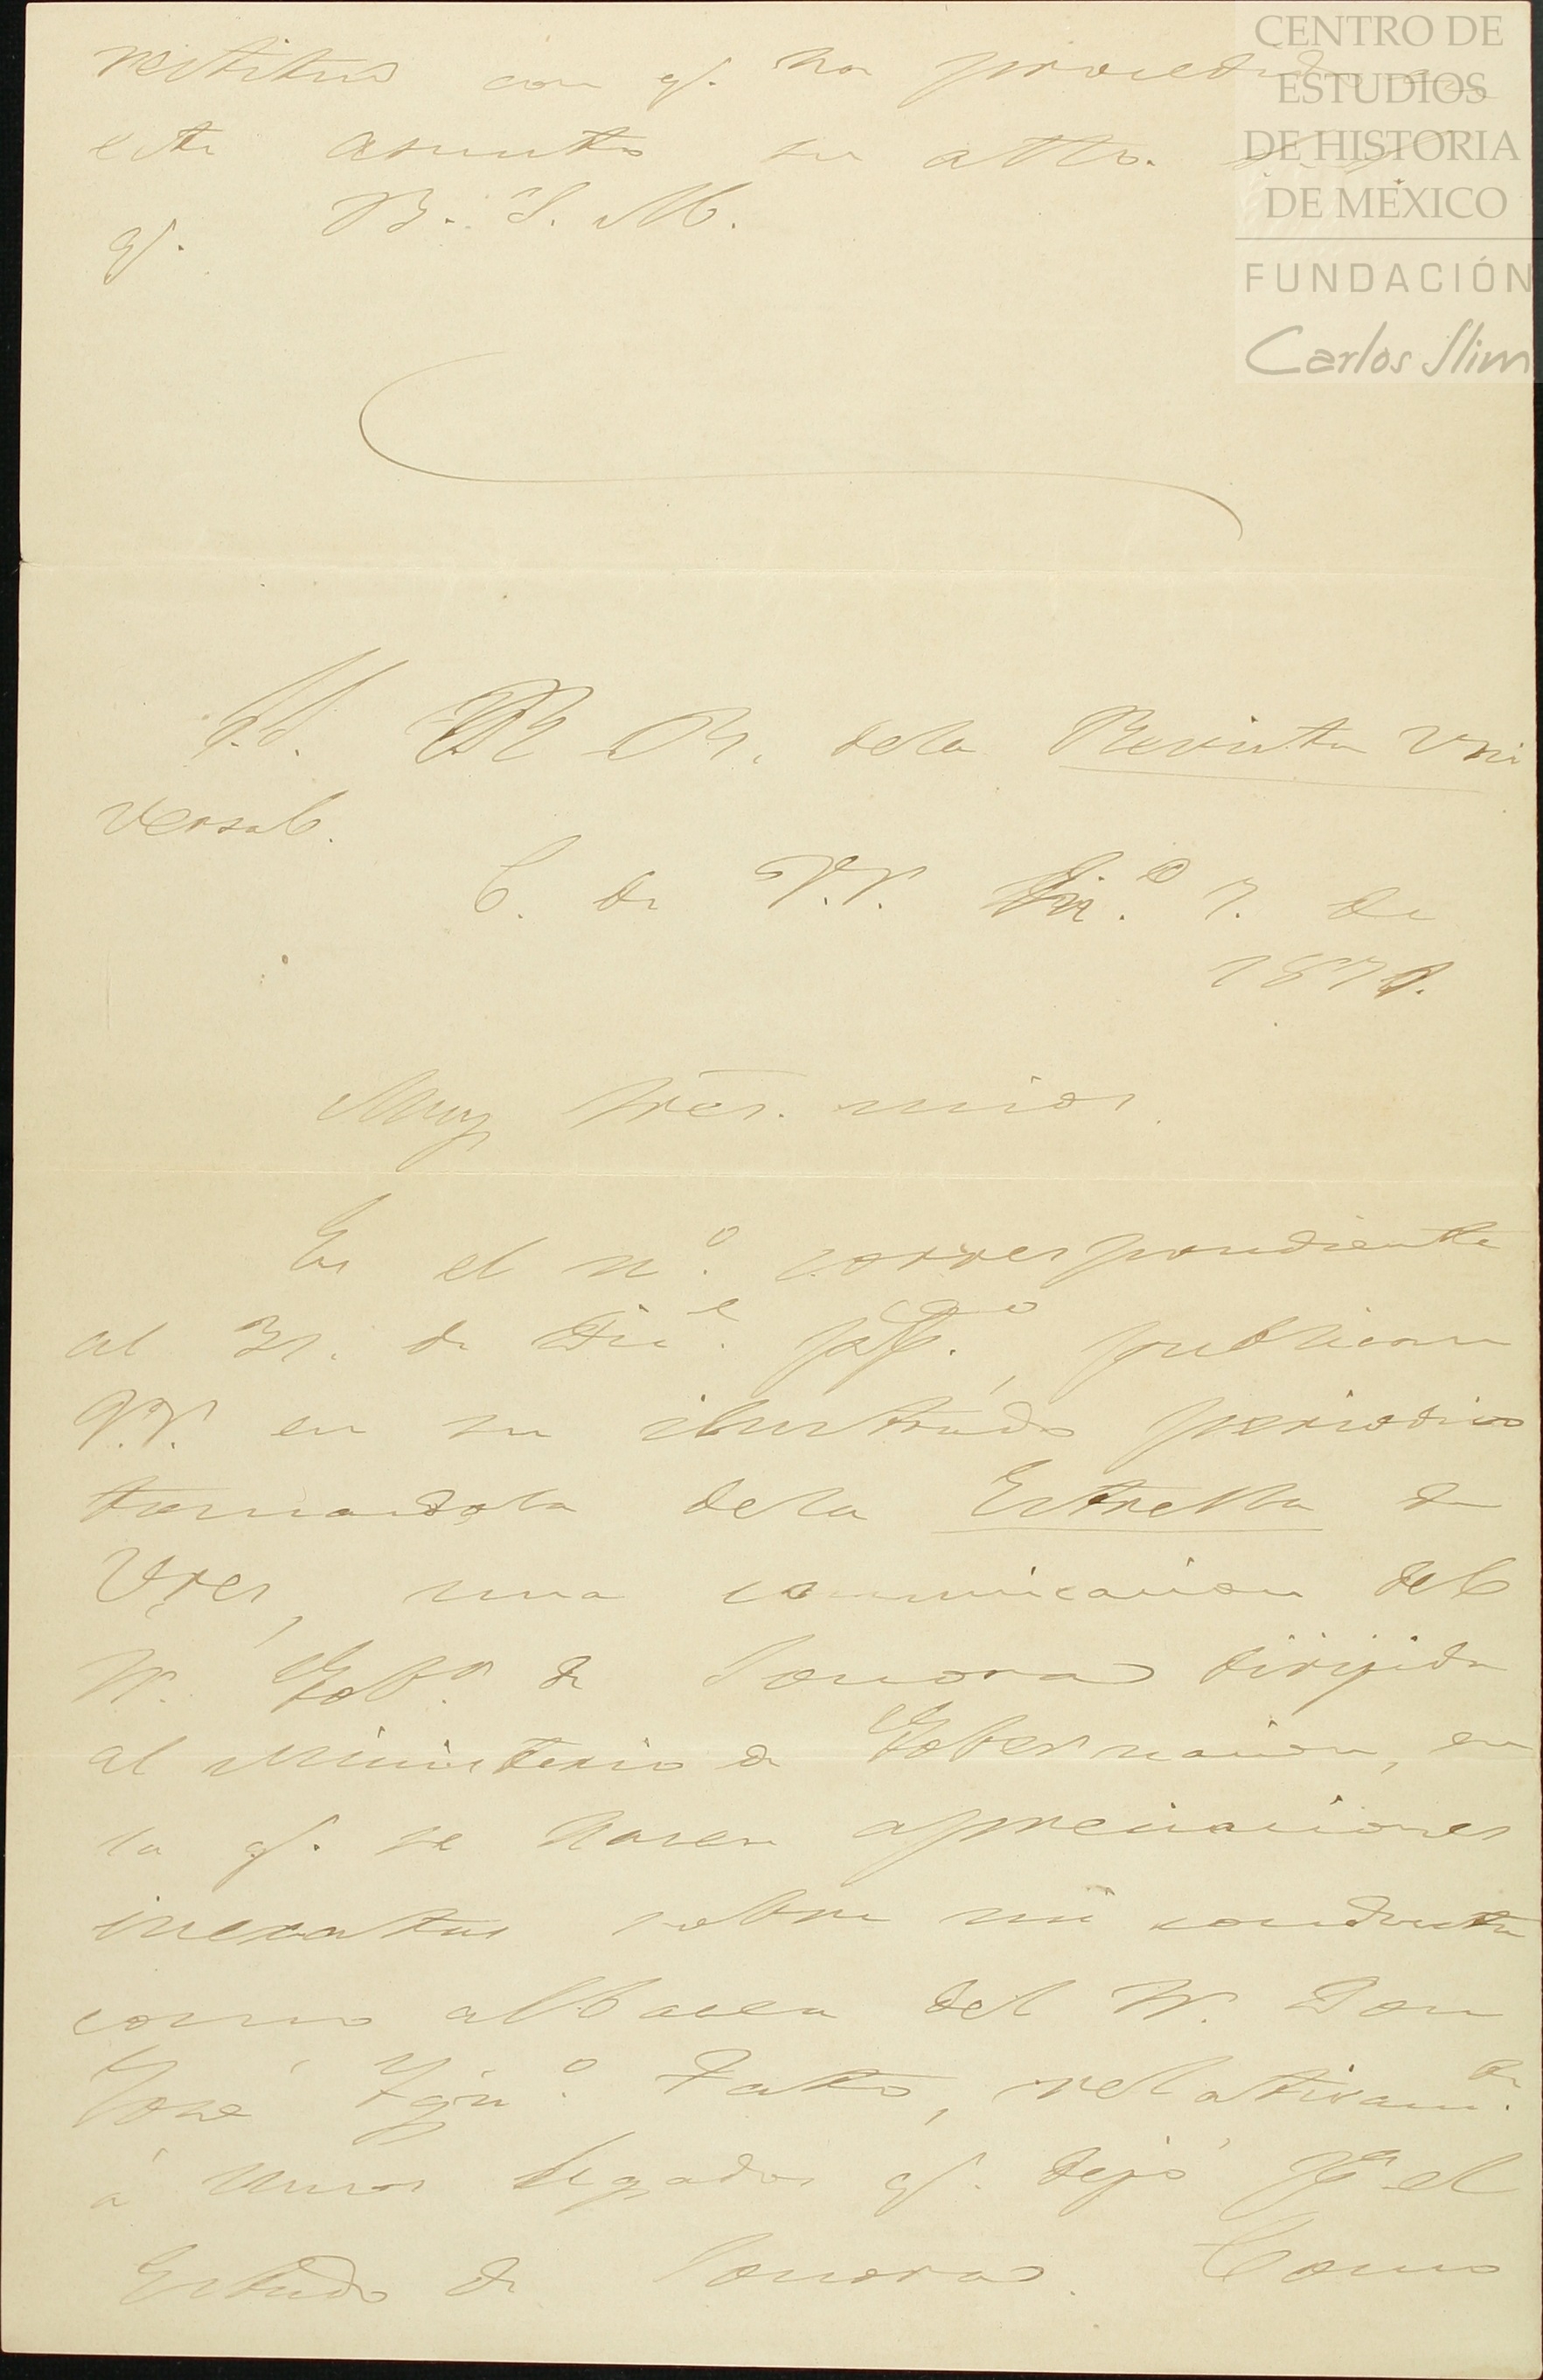 rectitud con q. ha procedido en
este asunto su atto.
q. B. S. M.
S.S. RR. de la Revista Uni
versal.
C. de VV. En.o 7. de
1871.
Muy Sres. mios.
En el n.o correspondiente
al 31. de Dic.e ppdo., publican
VV. en su ilustrado periodico
tomandola de la Estrella de
Ures, una comunicacion del
Sr. Gob.r de Sonora dirijida
al Ministerio de Gobernacion, en
la q. se hacen apreciaciones
inexactas sobre mi conducta
como albacea del Sr. Don
José Ign.o Pato, relativam.te
á unos legados q. dejó p.a el
Estado de Sonora. Como
CENTRO DE
ESTUDIOS
DE HISTORIA
DE MÉXICO
FUNDACIÓN
Carlos Slim